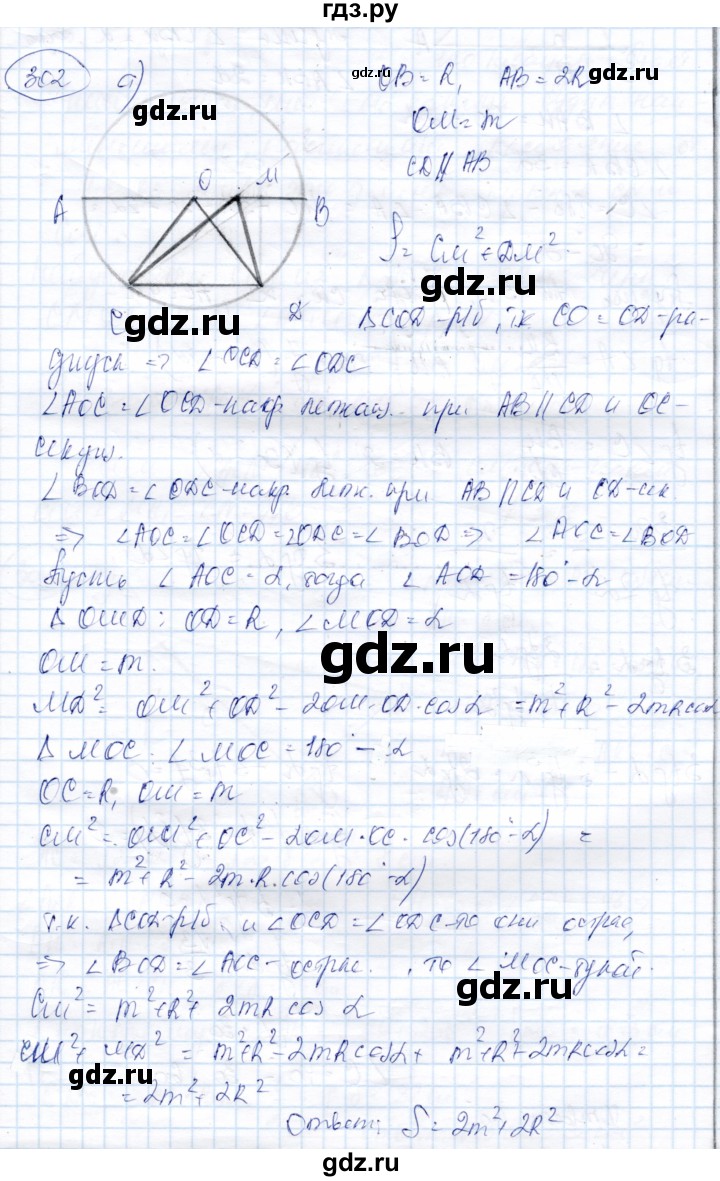 гдз.ру
302 а)
OB = R, AB = 2R
gdz.ru
gdz.ru
OM = m
CD || AB
O M
A B
S = CM² + DM²
gdz.ru
gdz.ru
C D
△COD - р/б, тк CO = OD - ра-
диусы => ∠OCD = ∠ODC
∠AOC = ∠OCD - накр. лежащ. при AB || CD и OC -
секущ.
∠BOD = ∠ODC - накр. леж. при AB || CD и OD - сек.
=> ∠AOC = ∠OCD = ∠ODC = ∠BOD => ∠AOC = ∠BOD
Пусть ∠AOC = α, тогда ∠AOD = 180° - α
△OMD: OD = R, ∠MOD = α
gdz.ru
OM = m.
MD² = OM² + OD² - 2OM·OD·cosα = m² + R² - 2mRcosα
△MOC: ∠MOC = 180° - α
OC = R, OM = m
CM² = OM² + OC² - 2OM·OC·cos(180° - α) =
= m² + R² - 2m·R·cos(180° - α)
т.к. △COD - р/б, и ∠OCD = ∠ODC - то они острые,
=> ∠BOD = ∠AOC - острые, то ∠MOC - тупой.
gdz.ru
CM² = m² + R² + 2mR cos α
CM² + MD² = m² + R² - 2mRcosα + m² + R² + 2mRcosα =
gdz.ru
gdz.ru
= 2m² + 2R²
Ответ: S = 2m² + 2R²
gdz.ru